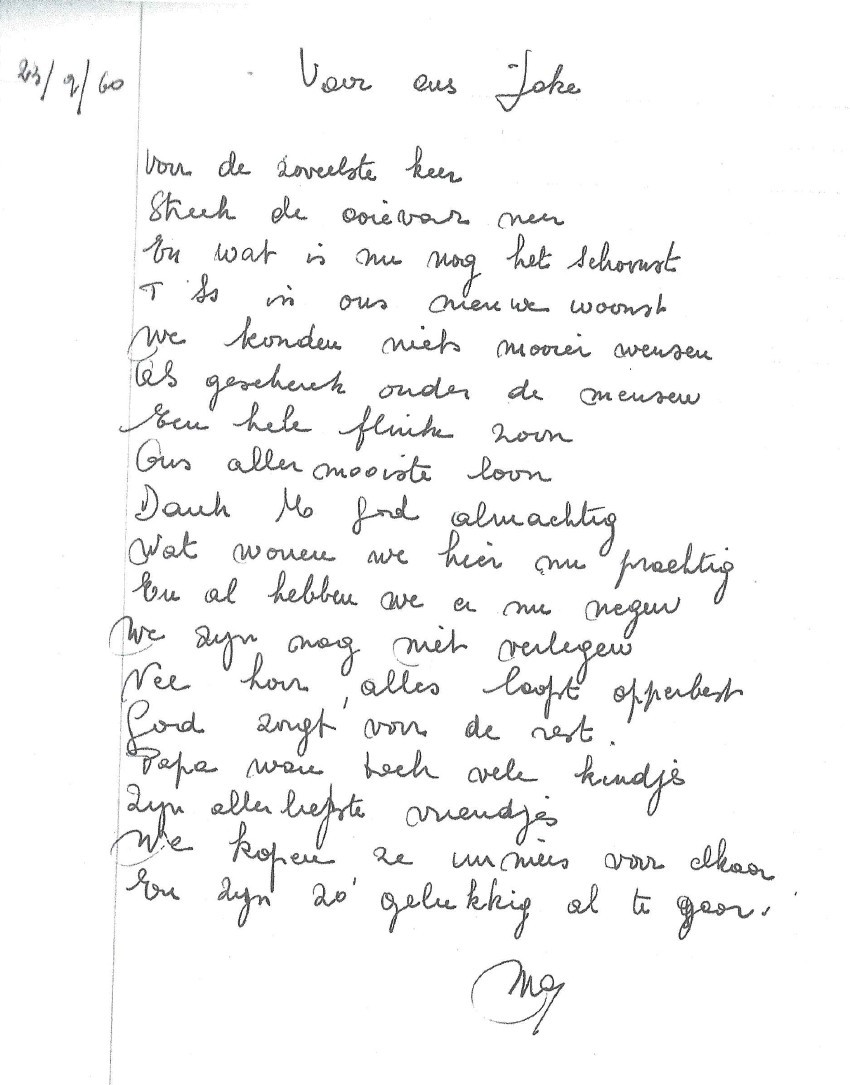 23/9/60
Voor ons Joke
Voor de zoveelste keer
Streek de ooievaar neer
En wat is nu nog het schoonst
T is in ons nieuwe woonst
We konden niets mooier wensen
Als geschenk onder de mensen
Een hele flinke zoon
Ons aller mooiste loon
Dank U God almachtig
Wat wonen we hier nu prachtig
En al hebben we er nu negen
We zyn nog niet verlegen
Nee hoor, alles loopt opperbest
God zorgt voor de rest.
Papa want toch vele kindjes
Zyn aller liefste vriendjes
We kopen ze immers voor elkaar
En zyn zo gelukkig al te gaar.